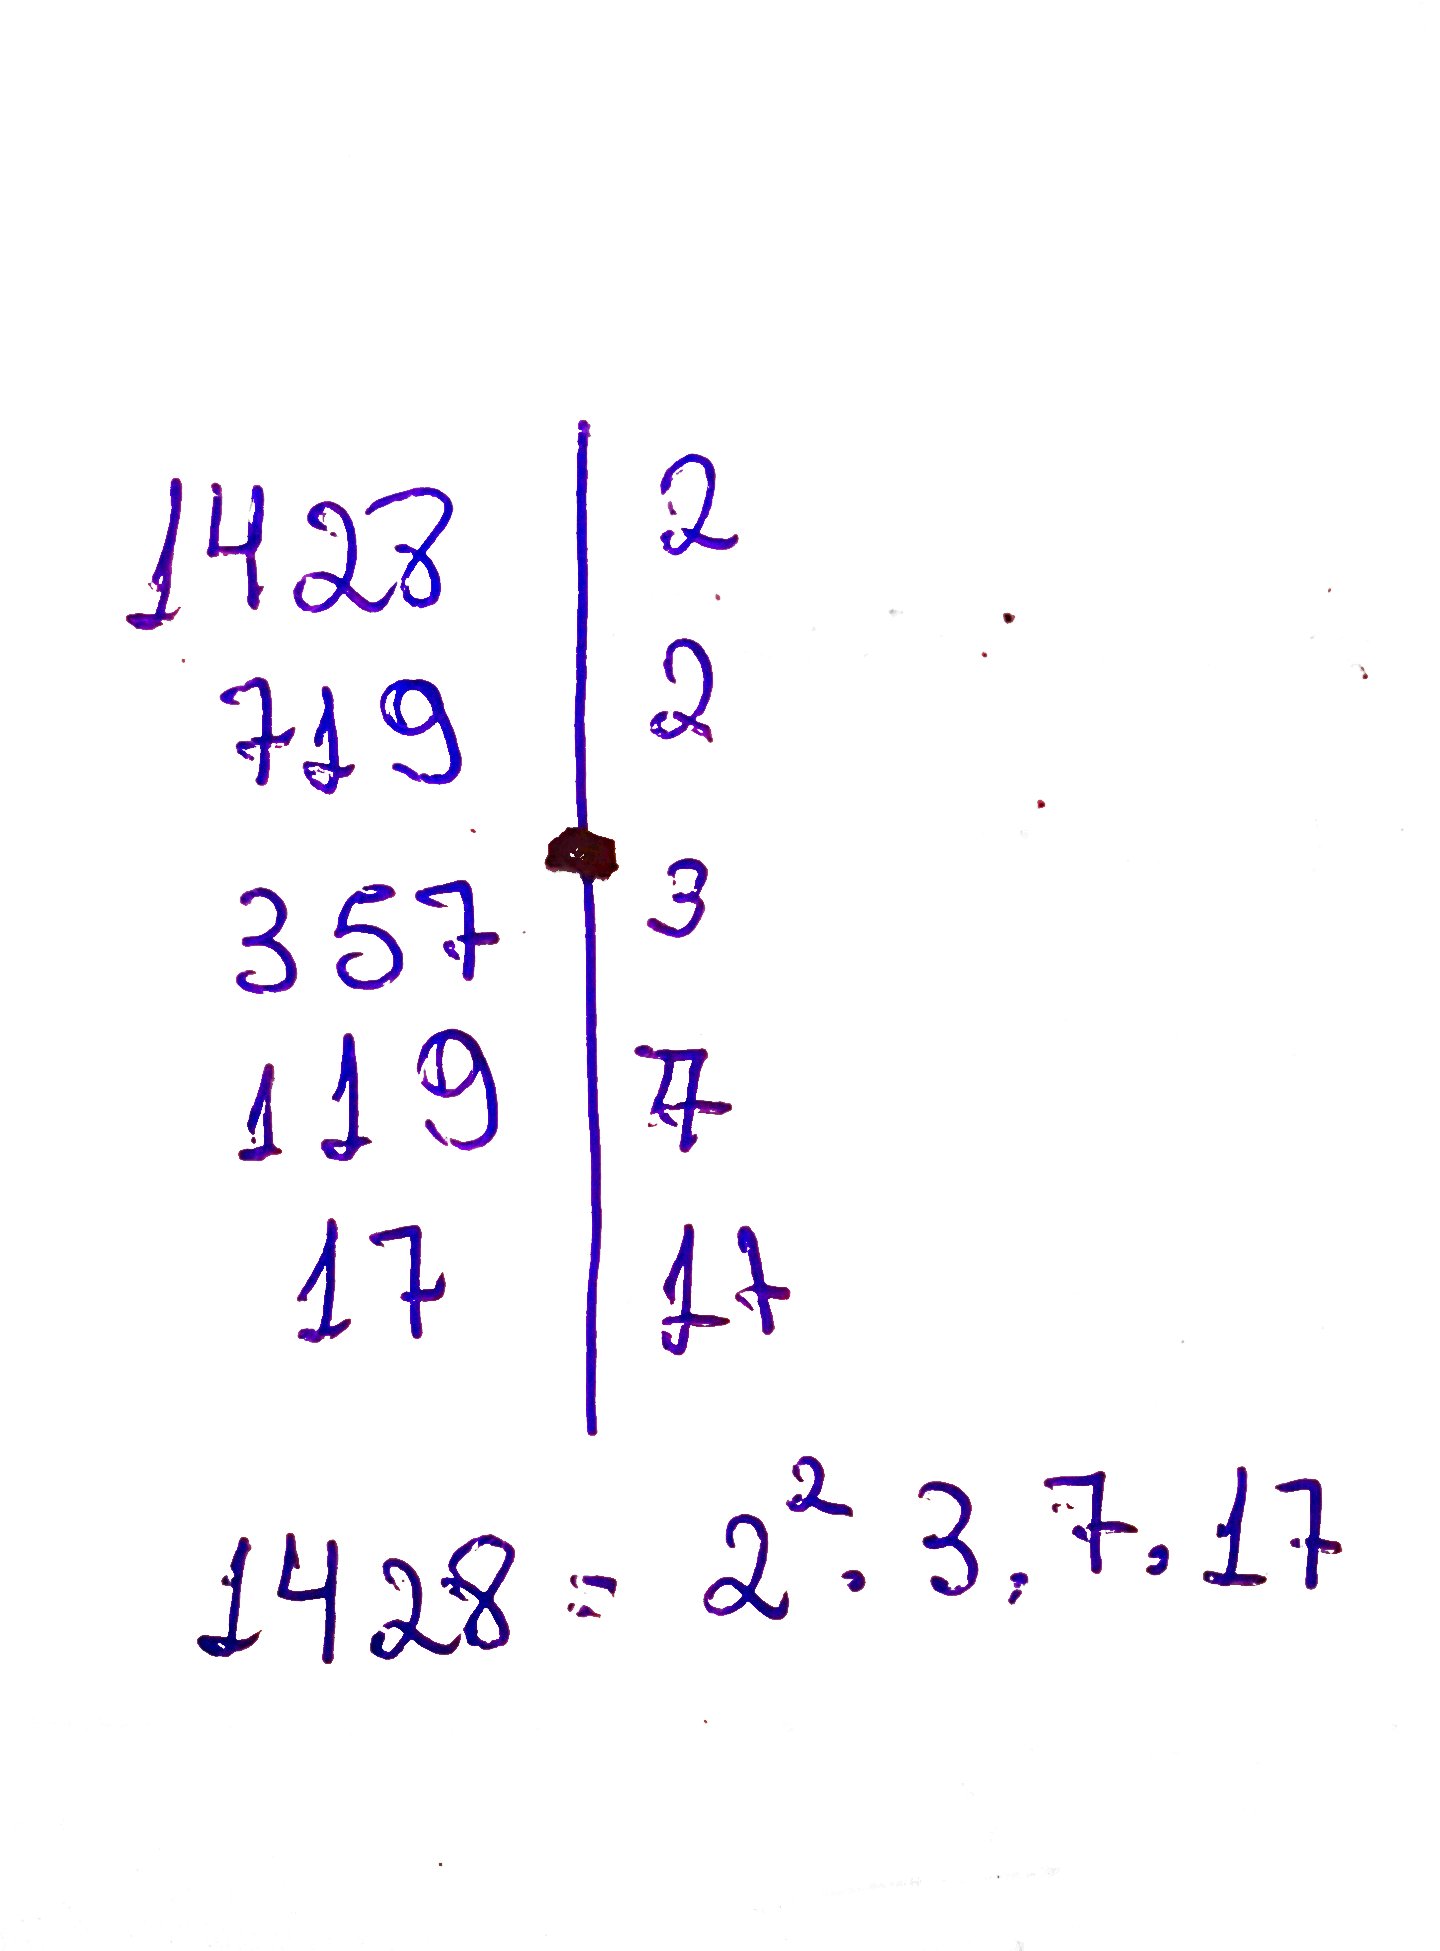 1428 2
719 2
357 3
119 7
17 17
1428 = 2². 3. 7. 17